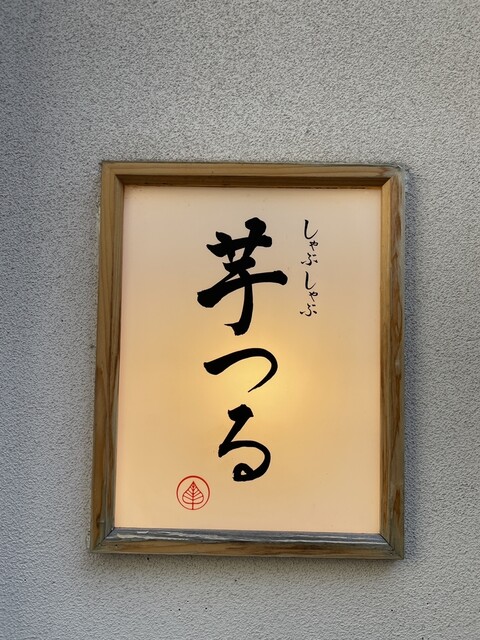 しゃぶしゃぶ
芋つる